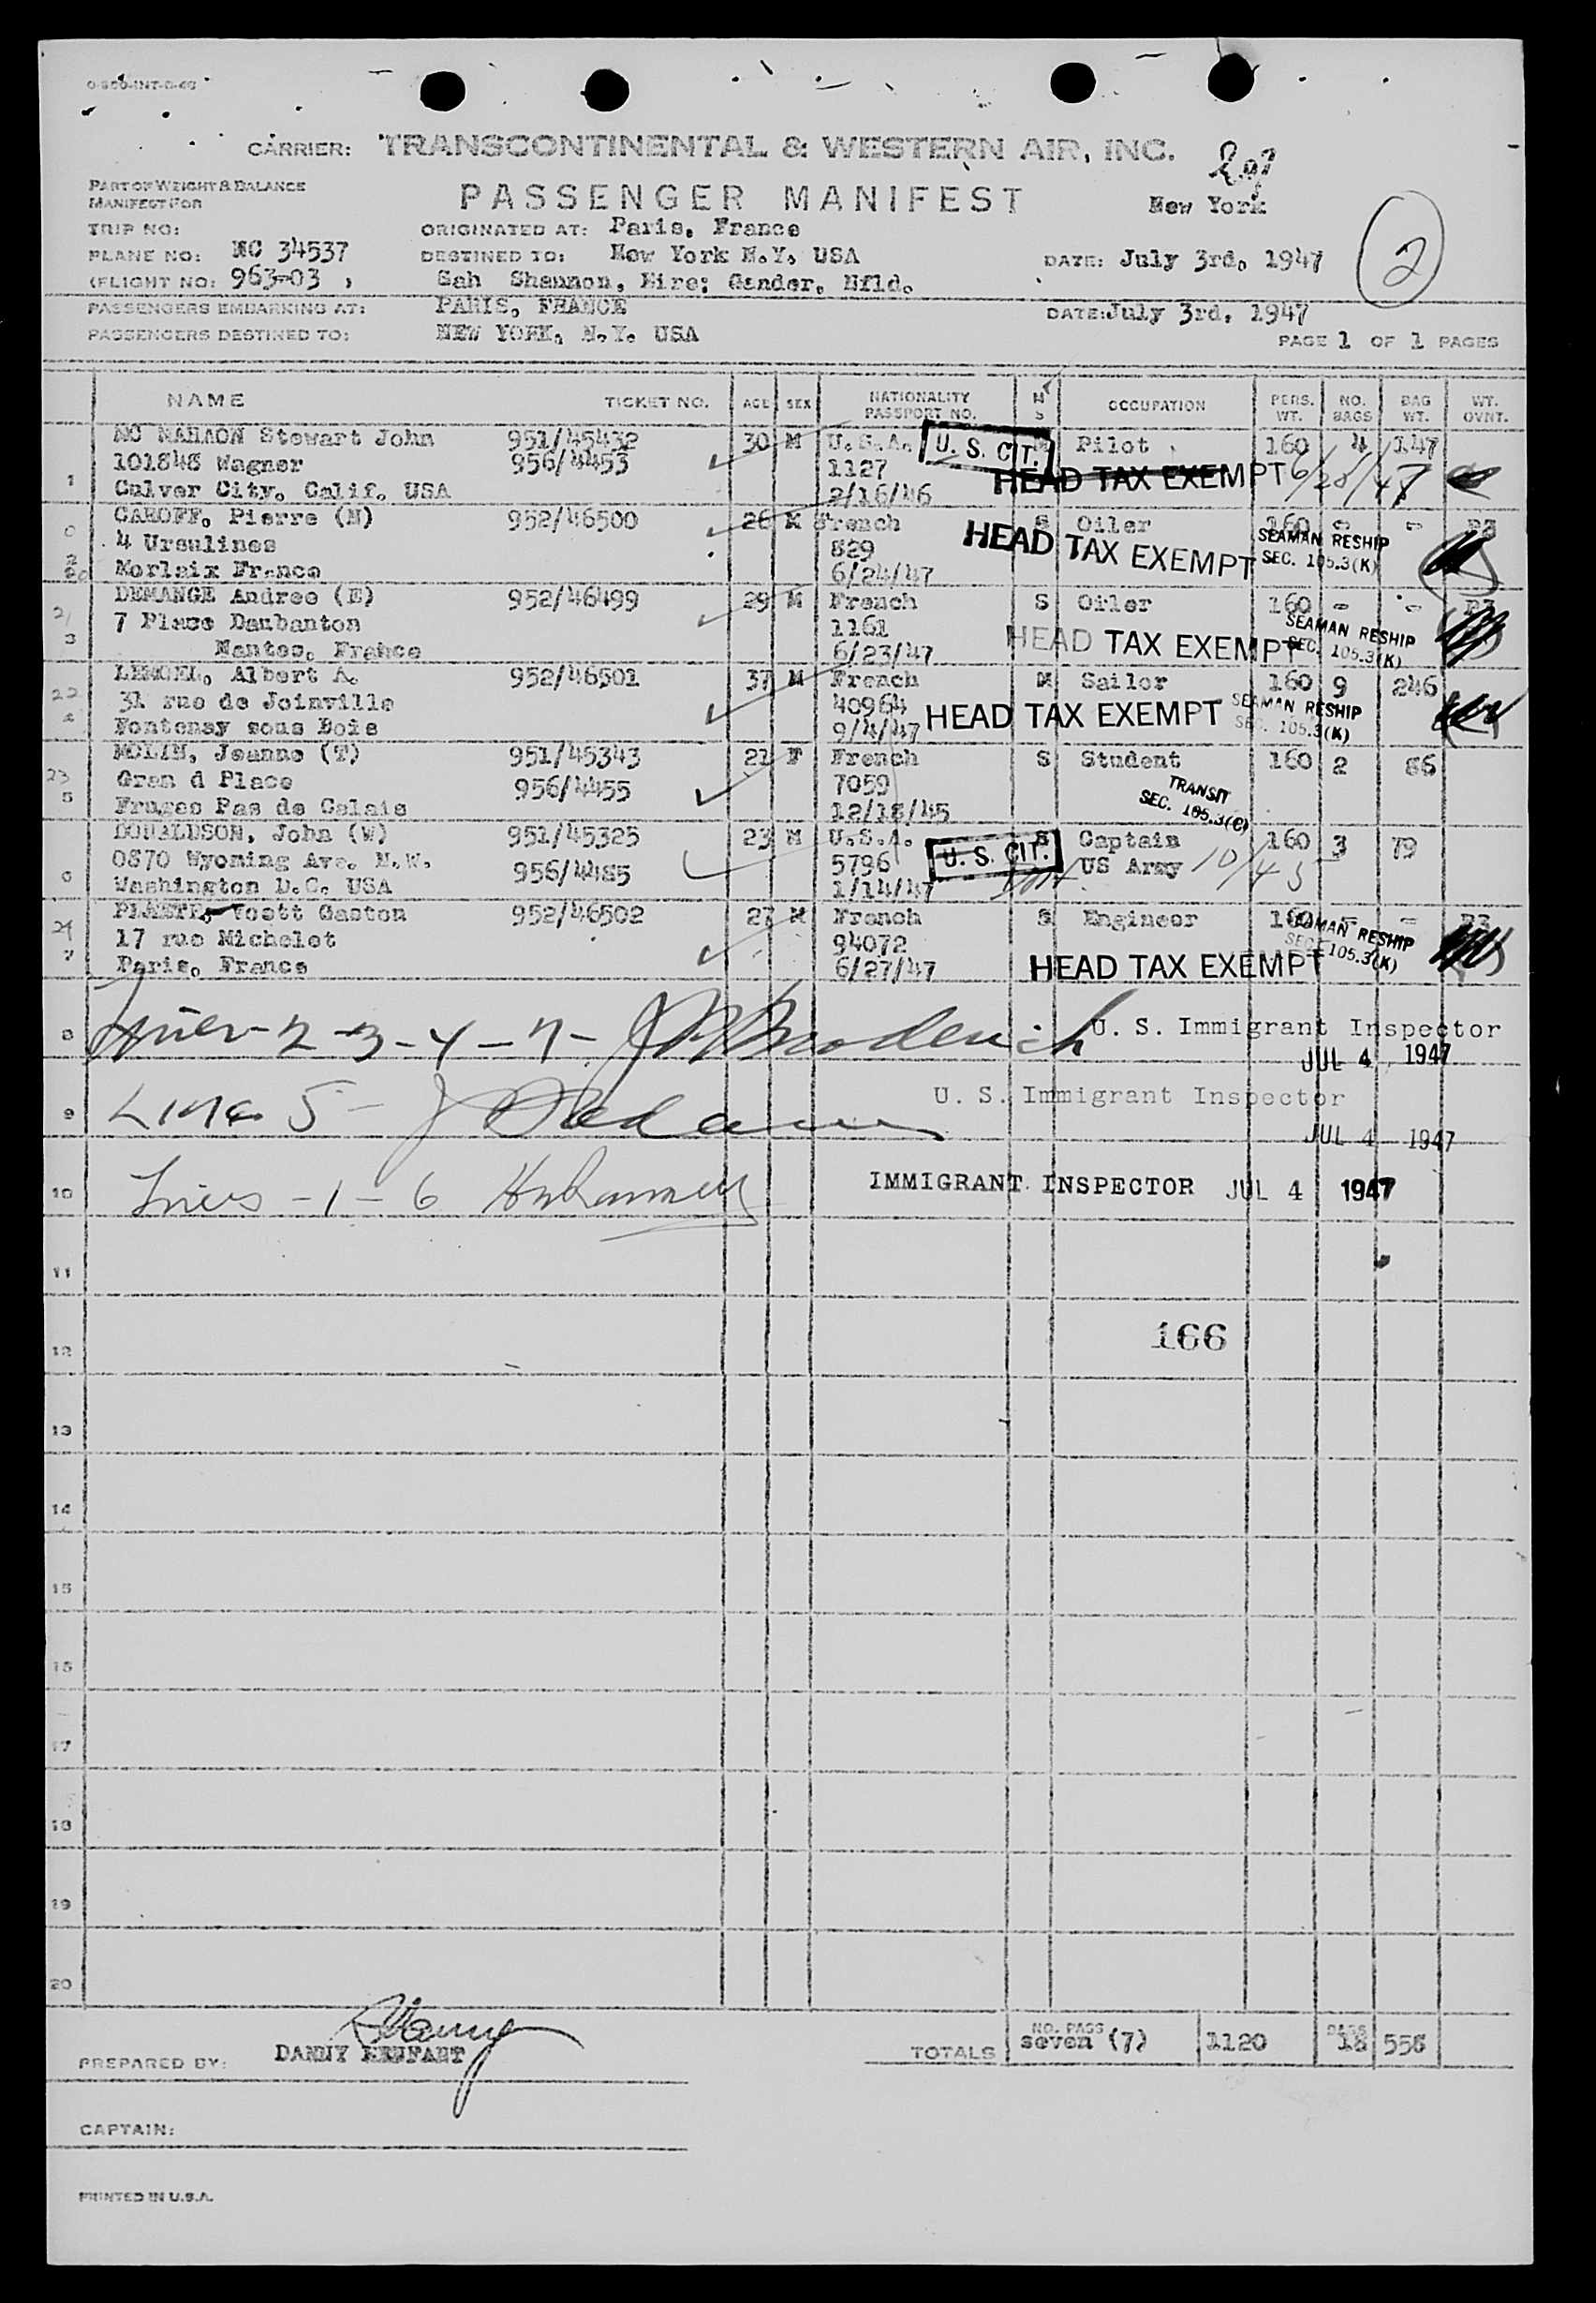 CARRIER: TRANSCONTINENTAL & WESTERN AIR, INC.
PART OF WEIGHT & BALANCE
MANIFEST FOR
PASSENGER MANIFEST
New York
TRIP NO:
ORIGINATED AT: Paris, France
PLANE NO: NC 34537
DESTINED TO: New York N.Y. USA
DATE: July 3rd, 1947
2
(FLIGHT NO: 963-03 )
Shannon, Eire; Gander, Nfld.
PASSENGERS EMBARKING AT: PARIS, FRANCE
DATE: July 3rd, 1947
PASSENGERS DESTINED TO: NEW YORK, N.Y. USA
PAGE 1 OF 1 PAGES
NAME TICKET NO. AGE SEX NATIONALITY PASSPORT NO. M S OCCUPATION PERS. WT. NO. BAGS BAG WT. WT. OVNT.
MC MAHAON Stewart John 951/45432 30 M U.S.A. U. S. CIT. Pilot 160 4 147
1 101848 Wagner 956/4453 1127 HEAD TAX EXEMPT
Culver City, Calif. USA 2/16/46
CAROFF, Pierre (N) 952/46500 26 M French S Oiler 160 - -
4 Ursulines 829 HEAD TAX EXEMPT SEAMAN RESHIP SEC. 105.3(K)
Morlaix France 6/24/47
DEMANGE Andree (E) 952/46499 29 M French S Oiler 160 - -
7 Place Daubanton 1161 HEAD TAX EXEMPT SEAMAN RESHIP SEC. 105.3(K)
3 Nantes, France 6/23/47
Albert A. 952/46501 37 M French M Sailor 160 9 246
22 31 rue de Joinville 40964 HEAD TAX EXEMPT SEAMAN RESHIP SEC. 105.3(K)
Fontenay sous Bois 9/4/47
MOLIN, Jeanne (T) 951/45343 21 F French S Student 160 2 86
23 Gran d Place 956/4455 7059 TRANSIT SEC. 105.3(C)
5 Fruges Pas de Calais 12/18/45
DONALDSON, John (W) 951/45325 23 M U.S.A. U. S. CIT. S Captain 160 3 79
0870 Wyoming Ave. N.W. 956/4485 5796 US Army 10/45
6 Washington D.C. USA 1/14/47
Gaston 952/46502 27 M French S Engineer 160 - -
24 17 rue Michelet 94072 SEAMAN RESHIP SEC. 105.3(K)
7 Paris, France 6/27/47 HEAD TAX EXEMPT
8 Lines - 2 - 3 - 4 - 7 - U. S. Immigrant Inspector
JUL 4 1947
9 Line 5 - U. S. Immigrant Inspector
JUL 4 1947
10 Lines - 1 - 6 IMMIGRANT INSPECTOR JUL 4 1947
11
166
12
13
14
15
16
17
18
19
20
PREPARED BY: DANNY
TOTALS NO. PASS seven (7) 1120 BAGS 18 558
CAPTAIN:
PRINTED IN U.S.A.